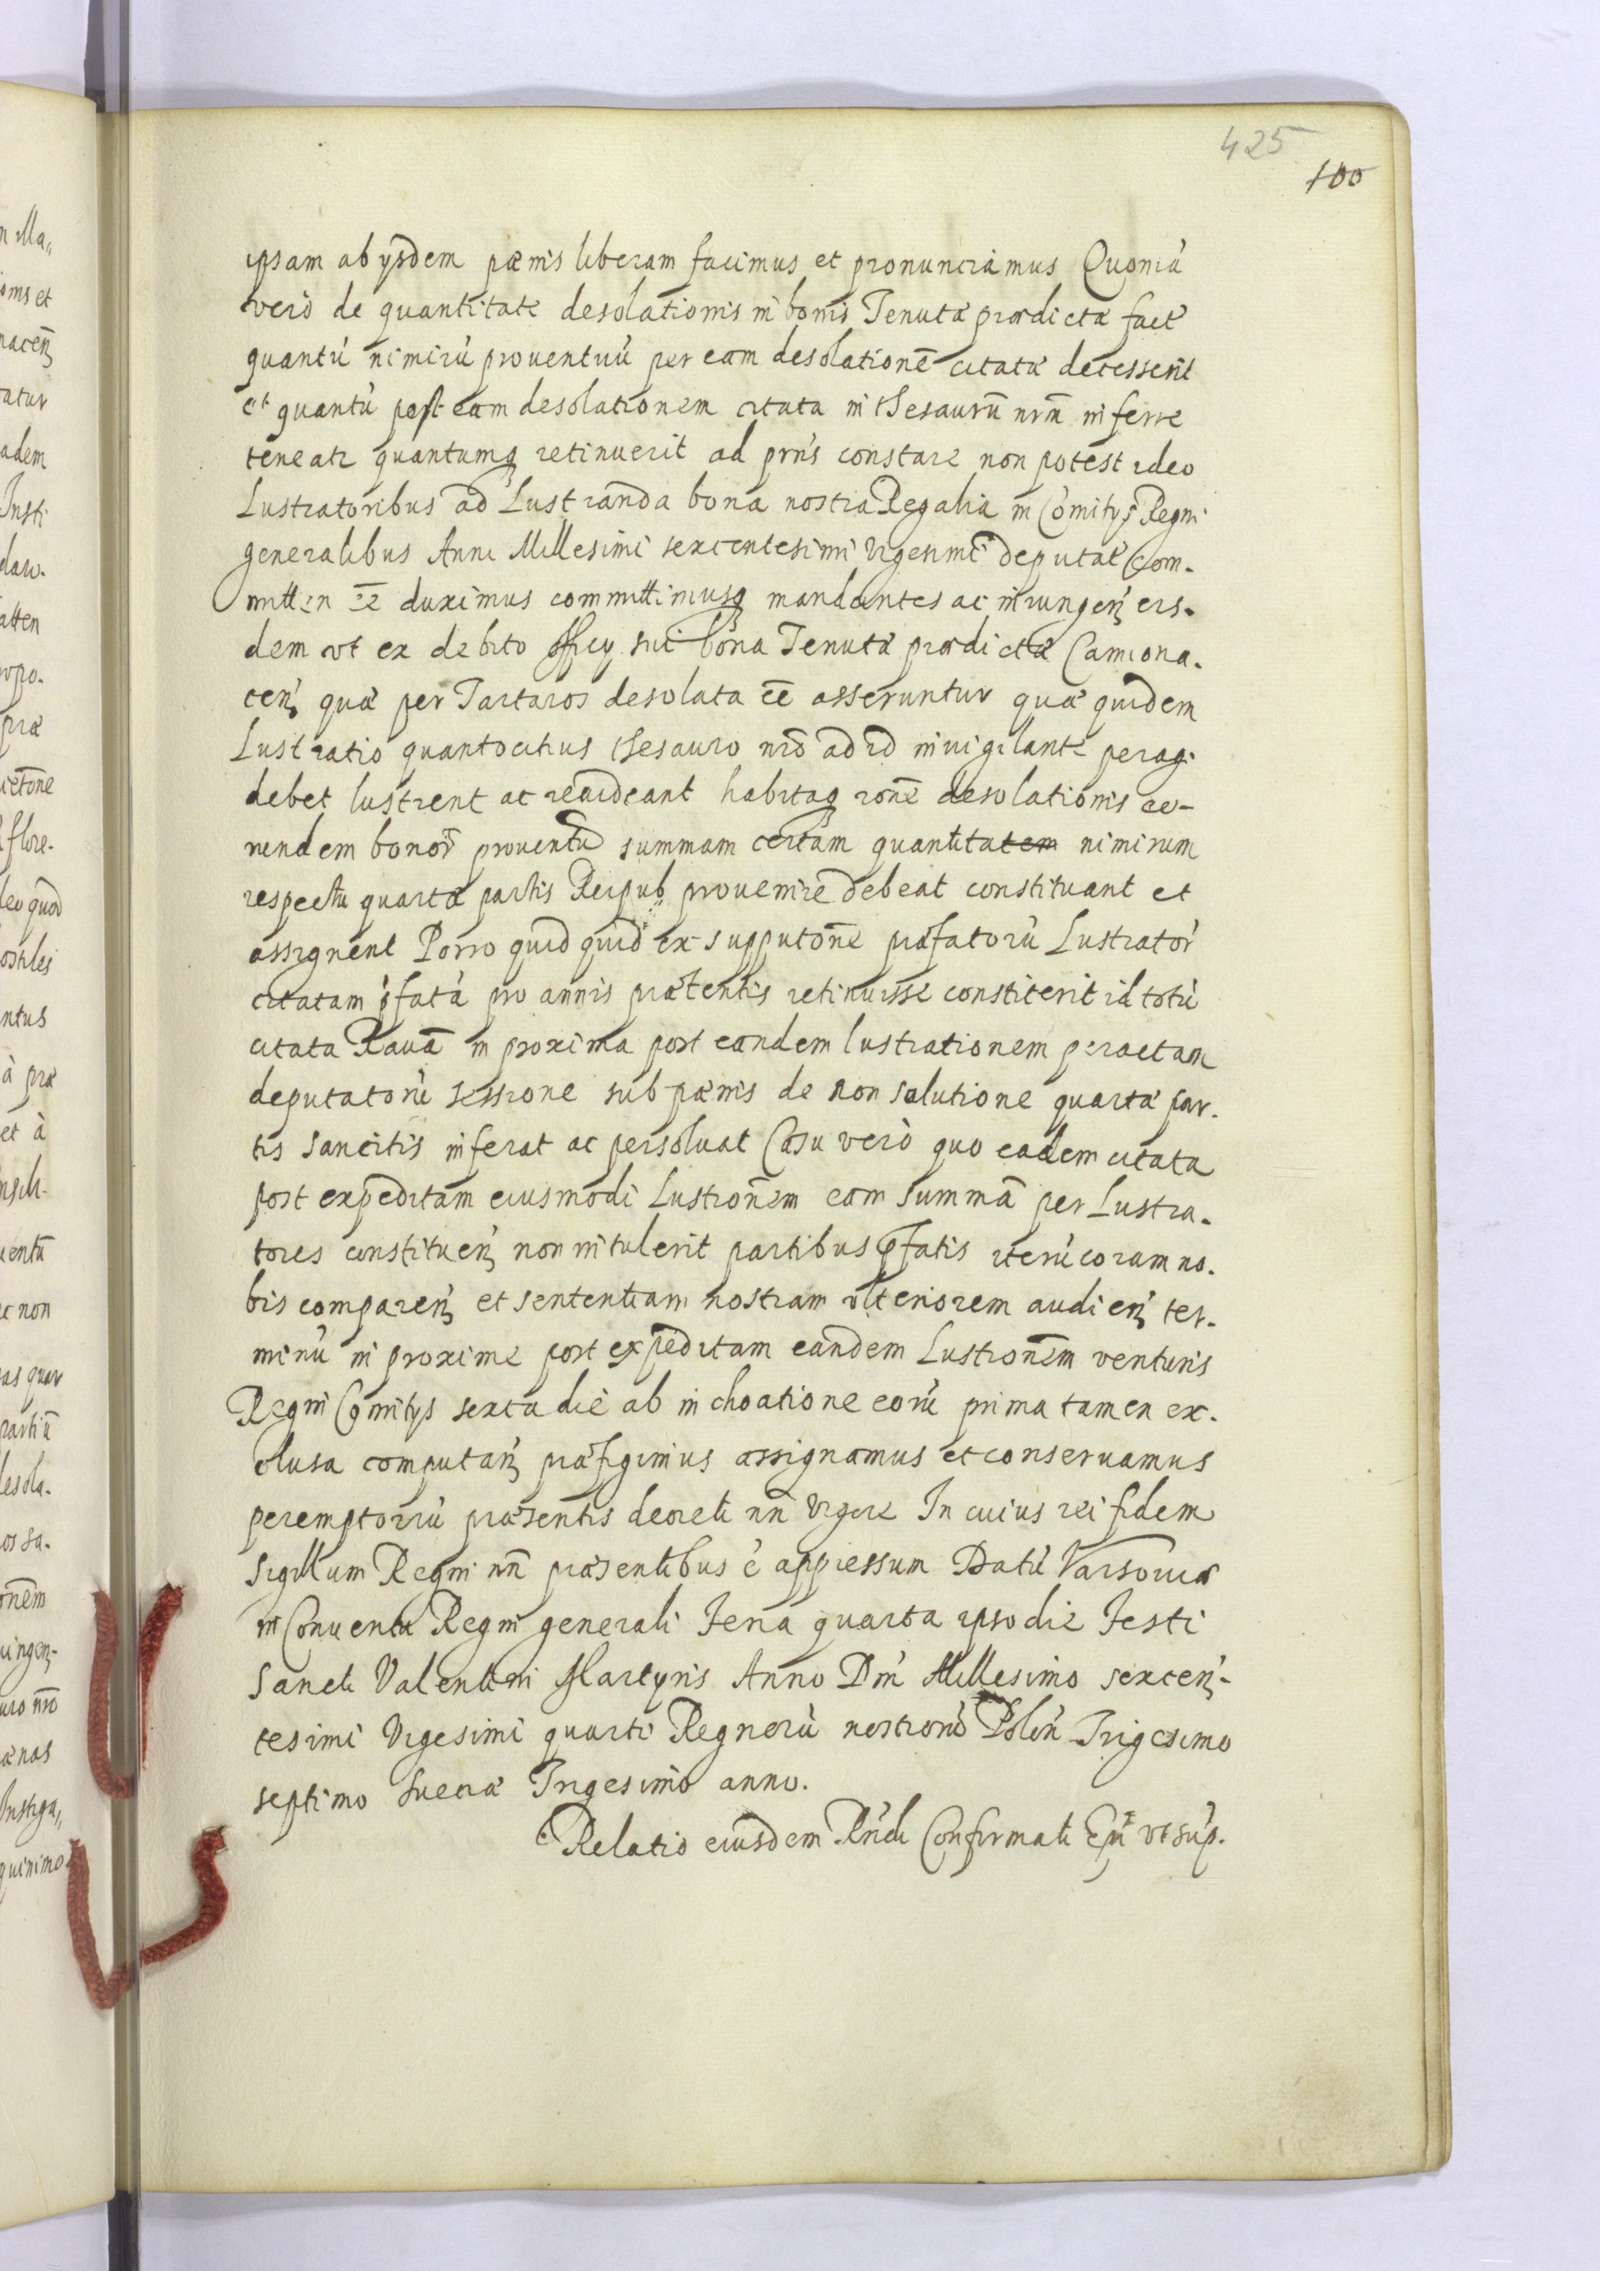 425
100
ipsam ab ijsdem pænis liberam facimus et pronunciamus Quoniā
verò de quantitate desolationis in bonis Tenutæ prædictæ fact
quantū nimirū prouentuū per eam desolationē citatæ decesserit
et quantū post eam desolationem citata in thesaurū nrm̄ inferre
teneatr quantumq retinuerit ad prn̄s constare non potest ideo
Lustratoribus ad Lustranda bona nostra Regalia in Comitijs Regni
generalibus Anni Millesimi sexcentesimi Vigesimi deputat Com-
mitten ēē duximus committimusq mandantes ac iniungen eis-
dem vt ex debito officij sui bona Tenutæ prædictæ Camiona-
cen quæ per Tartaros desolata ēē asseruntur quæ quidem
Lustratio quantocitius thesauro nrō ad id inuigilante peragi
debet lustrent ac reuideant habitaq ronē desolationis eo-
rundem bonor prouentū summam certam quantitatem nimirum
respectu quartæ partis Reipub prouenire debeat constituant et
assignent Porro quidquid ex supputonē præfatorū Lustrator
citatam pfatā pro annis prætentis retinuisse constiterit id totū
citata Rauā in proxima post eandem lustrationem peractam
deputatorū sessione sub pænis de non solutione quartæ par-
tis sancitis inferat ac persoluat Casu verò quo eadem citata
post expeditam eiusmodi Lustronem eam summā per Lustra-
tores constituen non intulerit partibus pfatis iterū coram no-
bis comparen et sententiam nostram vlteriorem audien ter-
minū in proxime post expeditam eandem Lustronem venturis
Regni Comitijs sexta die ab inchoatione eorū prima tamen ex-
clusa computan præfigimus assignamus et conseruamus
peremptoriū præsentis decreti nr̄i vigore In cuius rei fidem
sigillum Regni nr̄i præsentibus ē appressum Datū Varsouiæ
in Conuentu Regni generali Feria quarta ipso die Festi
Sancti Valentini Martyris Anno Dn̄i Millesimo sexcen-
tesimi Vigesimi quarti Regnorū nostrorū Polon Trigesimo
septimo Sueciæ Trigesimo anno.
Relatio eiusdem Rndi Confirmati Epi vt sup.